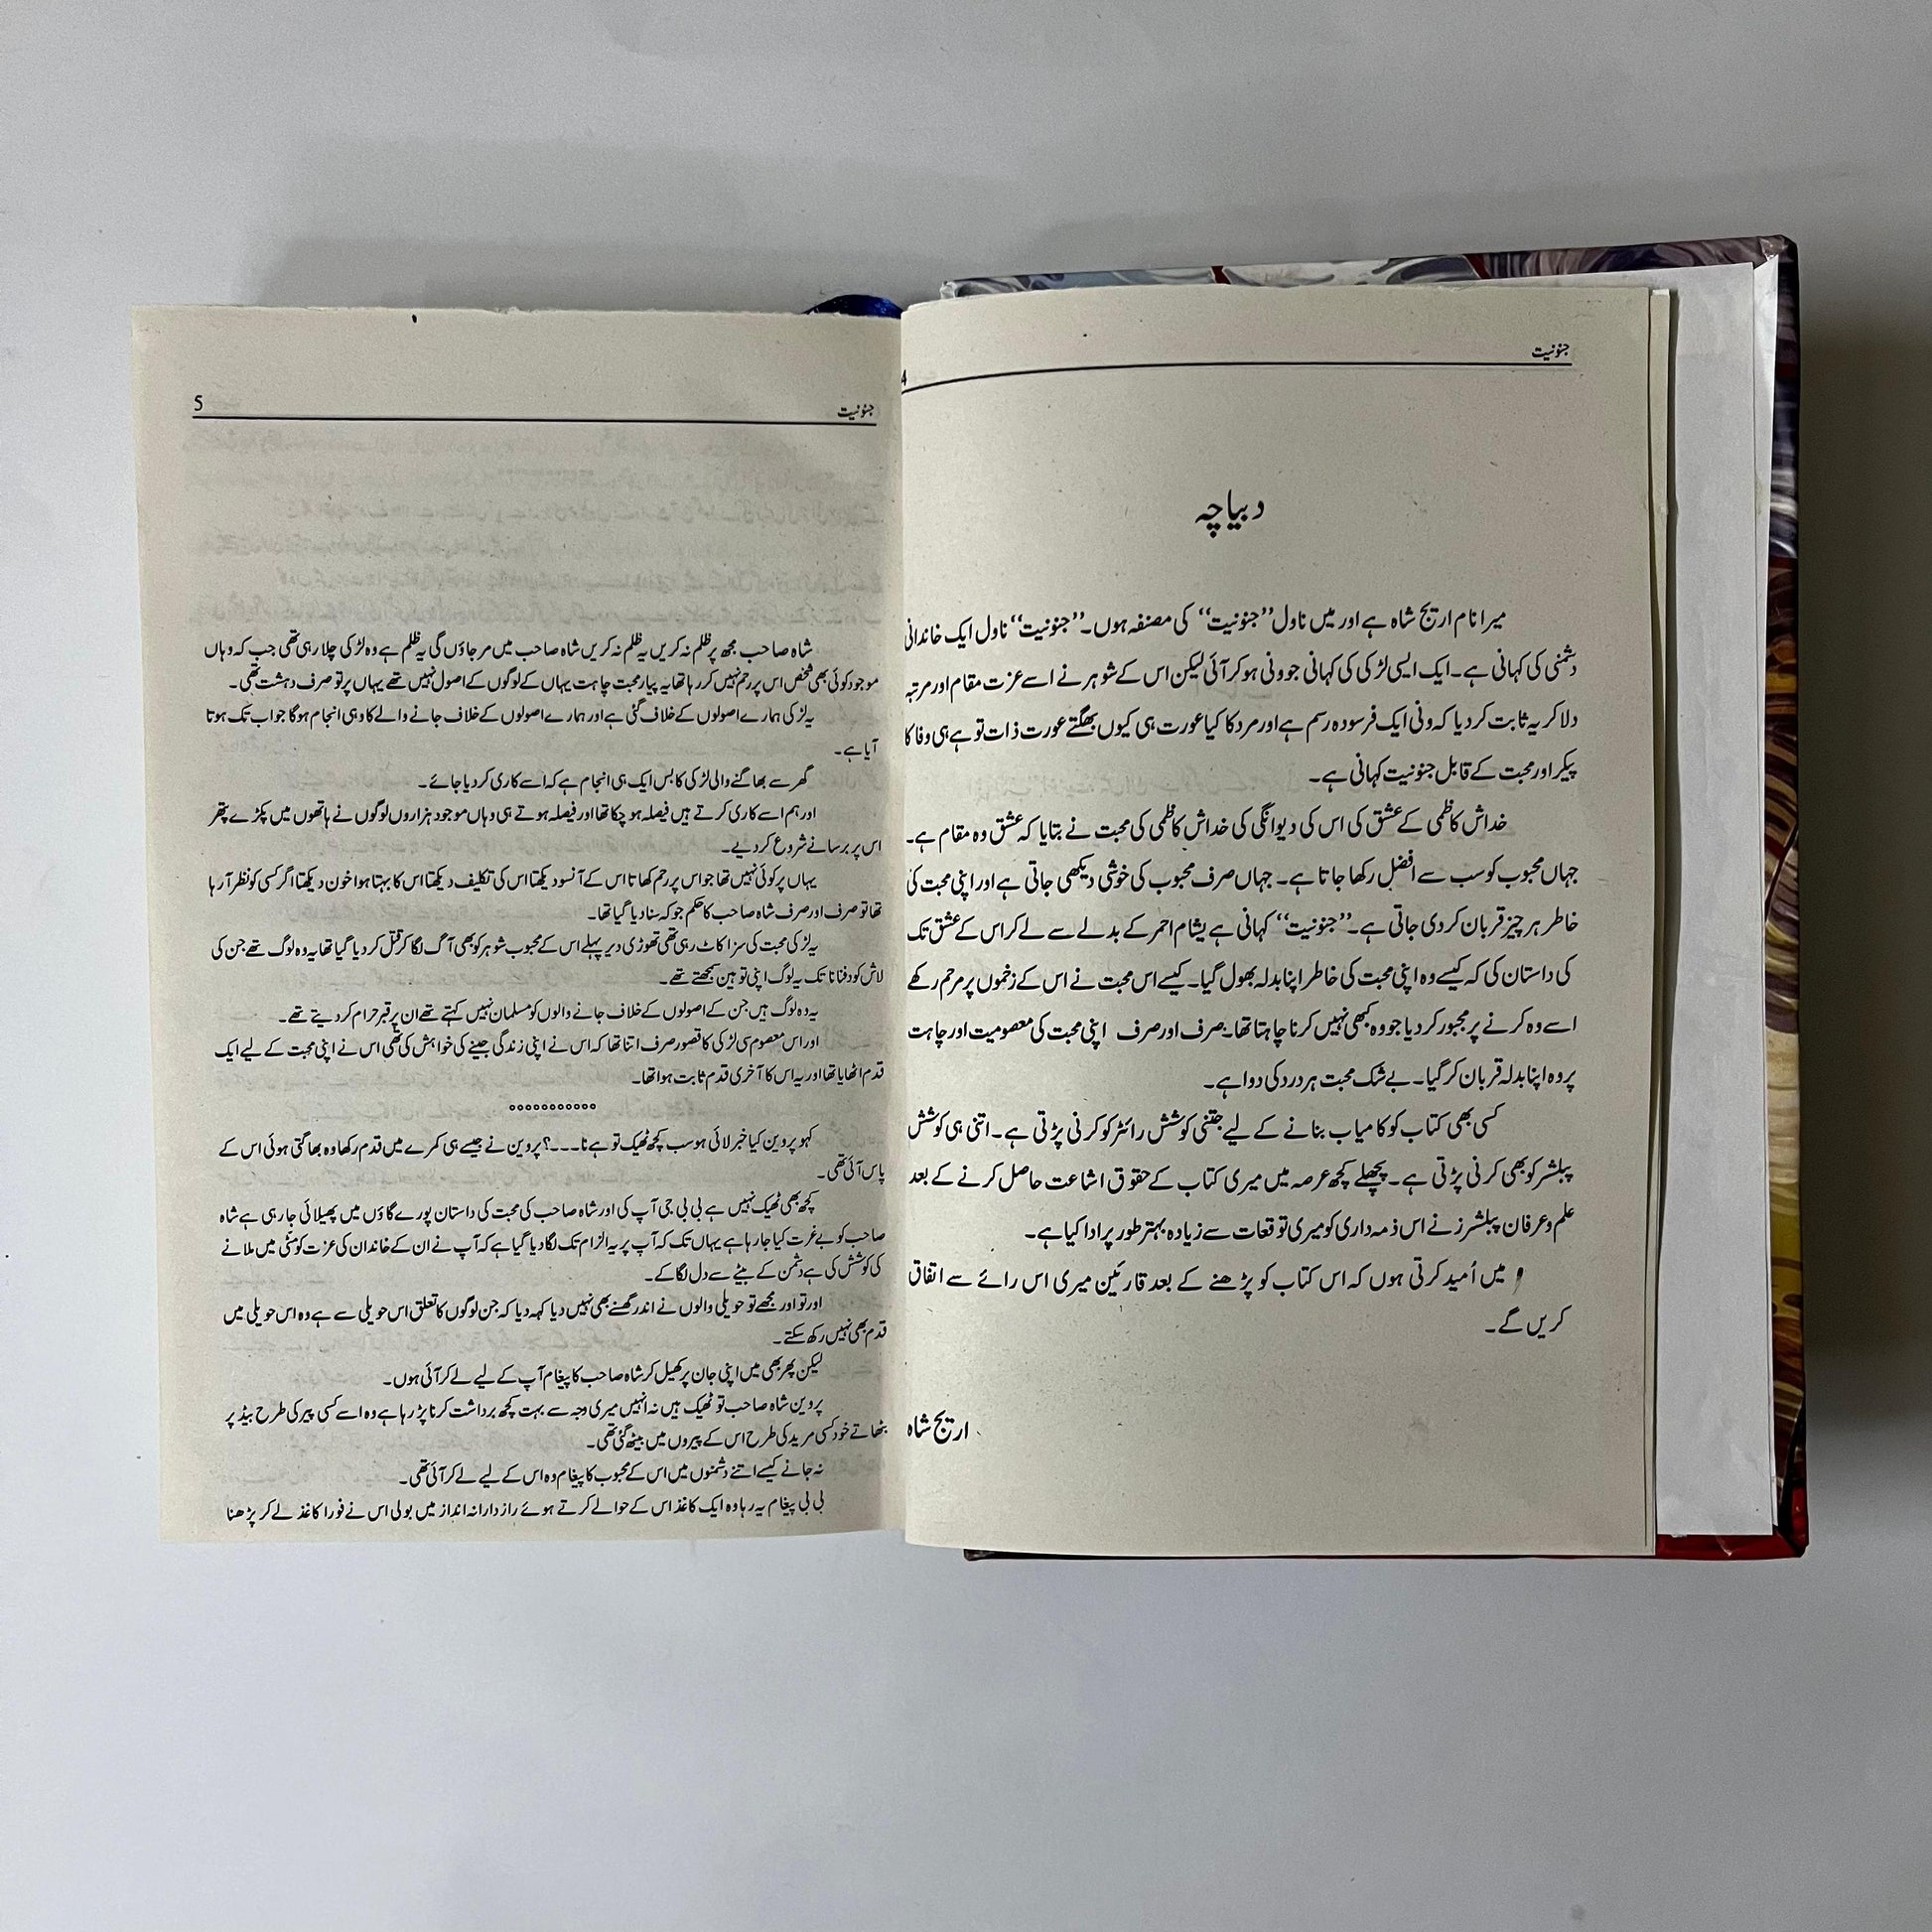 جنونیت
4
دیباچہ
میرا نام اریج شاہ ہے اور میں ناول ’’جنونیت‘‘ کی مصنفہ ہوں۔ ’’جنونیت‘‘ ناول ایک خاندانی
دشمنی کی کہانی ہے۔ ایک ایسی لڑکی کی کہانی جو ونی ہو کر آئی لیکن اس کے شوہر نے اسے عزت مقام اور مرتبہ
دلا کر یہ ثابت کر دیا کہ ونی ایک فرسودہ رسم ہے اور مرد کا کیا عورت ہی کیوں بھگتے عورت ذات تو ہے ہی وفا کا
پیکر اور محبت کے قابل جنونیت کہانی ہے۔
خداش کاظمی کے عشق کی اس کی دیوانگی کی خداش کاظمی کی محبت نے بتایا کہ عشق وہ مقام ہے۔
جہاں محبوب کو سب سے افضل رکھا جاتا ہے۔ جہاں صرف محبوب کی خوشی دیکھی جاتی ہے اور اپنی محبت کی
خاطر ہر چیز قربان کر دی جاتی ہے۔ ’’جنونیت‘‘ کہانی ہے یشام احمر کے بدلے سے لے کر اس کے عشق تک
کی داستان کی کہ کیسے وہ اپنی محبت کی خاطر اپنا بدلہ بھول گیا۔ کیسے اس محبت نے اس کے زخموں پر مرحم رکھے
اسے وہ کرنے پر مجبور کر دیا جو وہ کبھی نہیں کرنا چاہتا تھا۔ صرف اور صرف اپنی محبت کی معصومیت اور چاہت
پر وہ اپنا بدلہ قربان کر گیا۔ بے شک محبت ہر درد کی دوا ہے۔
کسی بھی کتاب کو کامیاب بنانے کے لیے جتنی کوشش رائٹر کو کرنی پڑتی ہے۔ اتنی ہی کوشش
پبلشر کو بھی کرنی پڑتی ہے۔ پچھلے کچھ عرصہ میں میری کتاب کے حقوق اشاعت حاصل کرنے کے بعد
علم و عرفان پبلشرز نے اس ذمہ داری کو میری توقعات سے زیادہ بہتر طور پر ادا کیا ہے۔
میں اُمید کرتی ہوں کہ اس کتاب کو پڑھنے کے بعد قارئین میری اس رائے سے اتفاق
کریں گے۔
اریج شاہ
جنونیت
5
شاہ صاحب مجھ پر ظلم نہ کریں یہ ظلم نہ کریں شاہ صاحب میں مر جاؤں گی یہ ظلم ہے وہ لڑکی چلا رہی تھی جب کہ وہاں
موجود کوئی بھی شخص اس پر رحم نہیں کر رہا تھا یہ پیار محبت چاہت یہاں کے لوگوں کے اصول نہیں تھے یہاں پر تو صرف دہشت تھی۔
یہ لڑکی ہمارے اصولوں کے خلاف گئی ہے اور ہمارے اصولوں کے خلاف جانے والے کا وہی انجام ہوگا جو اب تک ہوتا
آیا ہے۔
گھر سے بھاگنے والی لڑکی کا بس ایک ہی انجام ہے کہ اسے کاری کر دیا جائے۔
اور ہم اسے کاری کرتے ہیں فیصلہ ہو چکا تھا اور فیصلہ ہوتے ہی وہاں موجود ہزاروں لوگوں نے ہاتھوں میں پکڑے پتھر
اس پر برسانے شروع کر دیے۔
یہاں پر کوئی نہیں تھا جو اس پر رحم کھاتا اس کے آنسو دیکھتا اس کی تکلیف دیکھتا اس کا بہتا ہوا خون دیکھتا اگر کسی کو نظر آ رہا
تھا تو صرف اور صرف شاہ صاحب کا حکم جو کہ سنا دیا گیا تھا۔
یہ لڑکی محبت کی سزا کاٹ رہی تھی تھوڑی دیر پہلے اس کے محبوب شوہر کو بھی آگ لگا کر قتل کر دیا گیا تھا یہ وہ لوگ تھے جن کی
لاش کو دفنانا تک یہ لوگ اپنی توہین سمجھتے تھے۔
یہ وہ لوگ ہیں جن کے اصولوں کے خلاف جانے والوں کو مسلمان نہیں کہتے تھے ان پر قبر حرام کر دیتے تھے۔
اور اس معصوم سی لڑکی کا قصور صرف اتنا تھا کہ اس نے اپنی زندگی جینے کی خواہش کی تھی اس نے اپنی محبت کے لیے ایک
قدم اٹھایا تھا اور یہ اس کا آخری قدم ثابت ہوا تھا۔
°°°°°°°°°°°
کہو پروین کیا خبر لائی ہو سب کچھ ٹھیک تو ہے نا۔۔۔؟ پروین نے جیسے ہی کمرے میں قدم رکھا وہ بھاگتی ہوئی اس کے
پاس آئی تھی۔
کچھ بھی ٹھیک نہیں ہے بی بی جی آپ کی اور شاہ صاحب کی محبت کی داستان پورے گاؤں میں پھیلائی جا رہی ہے شاہ
صاحب کو بے غرت کیا جا رہا ہے یہاں تک کہ آپ پر یہ الزام تک لگا دیا گیا ہے کہ آپ نے ان کے خاندان کی عزت کو مٹی میں ملانے
کی کوشش کی ہے دشمن کے بیٹے سے دل لگا کے۔
اور تو اور مجھے تو حویلی والوں نے اندر گھسنے بھی نہیں دیا کہہ دیا کہ جن لوگوں کا تعلق اس حویلی سے ہے وہ اس حویلی میں
قدم بھی نہیں رکھ سکتے۔
لیکن پھر بھی میں اپنی جان پر کھیل کر شاہ صاحب کا پیغام آپ کے لیے لے کر آئی ہوں۔
پروین شاہ صاحب تو ٹھیک ہیں نہ انہیں میری وجہ سے بہت کچھ برداشت کرنا پڑ رہا ہے وہ اسے کسی پیر کی طرح بیڈ پر
بٹھاتے خود کسی مرید کی طرح اس کے پیروں میں بیٹھ گئی تھی۔
نہ جانے کیسے اتنے دشمنوں میں اس کے محبوب کا پیغام وہ اس کے لیے لے کر آئی تھی۔
بی بی پیغام یہ رہا وہ ایک کاغذ اس کے حوالے کرتے ہوئے رازدارانہ انداز میں بولی اس نے فورا کاغذ لے کر پڑھنا